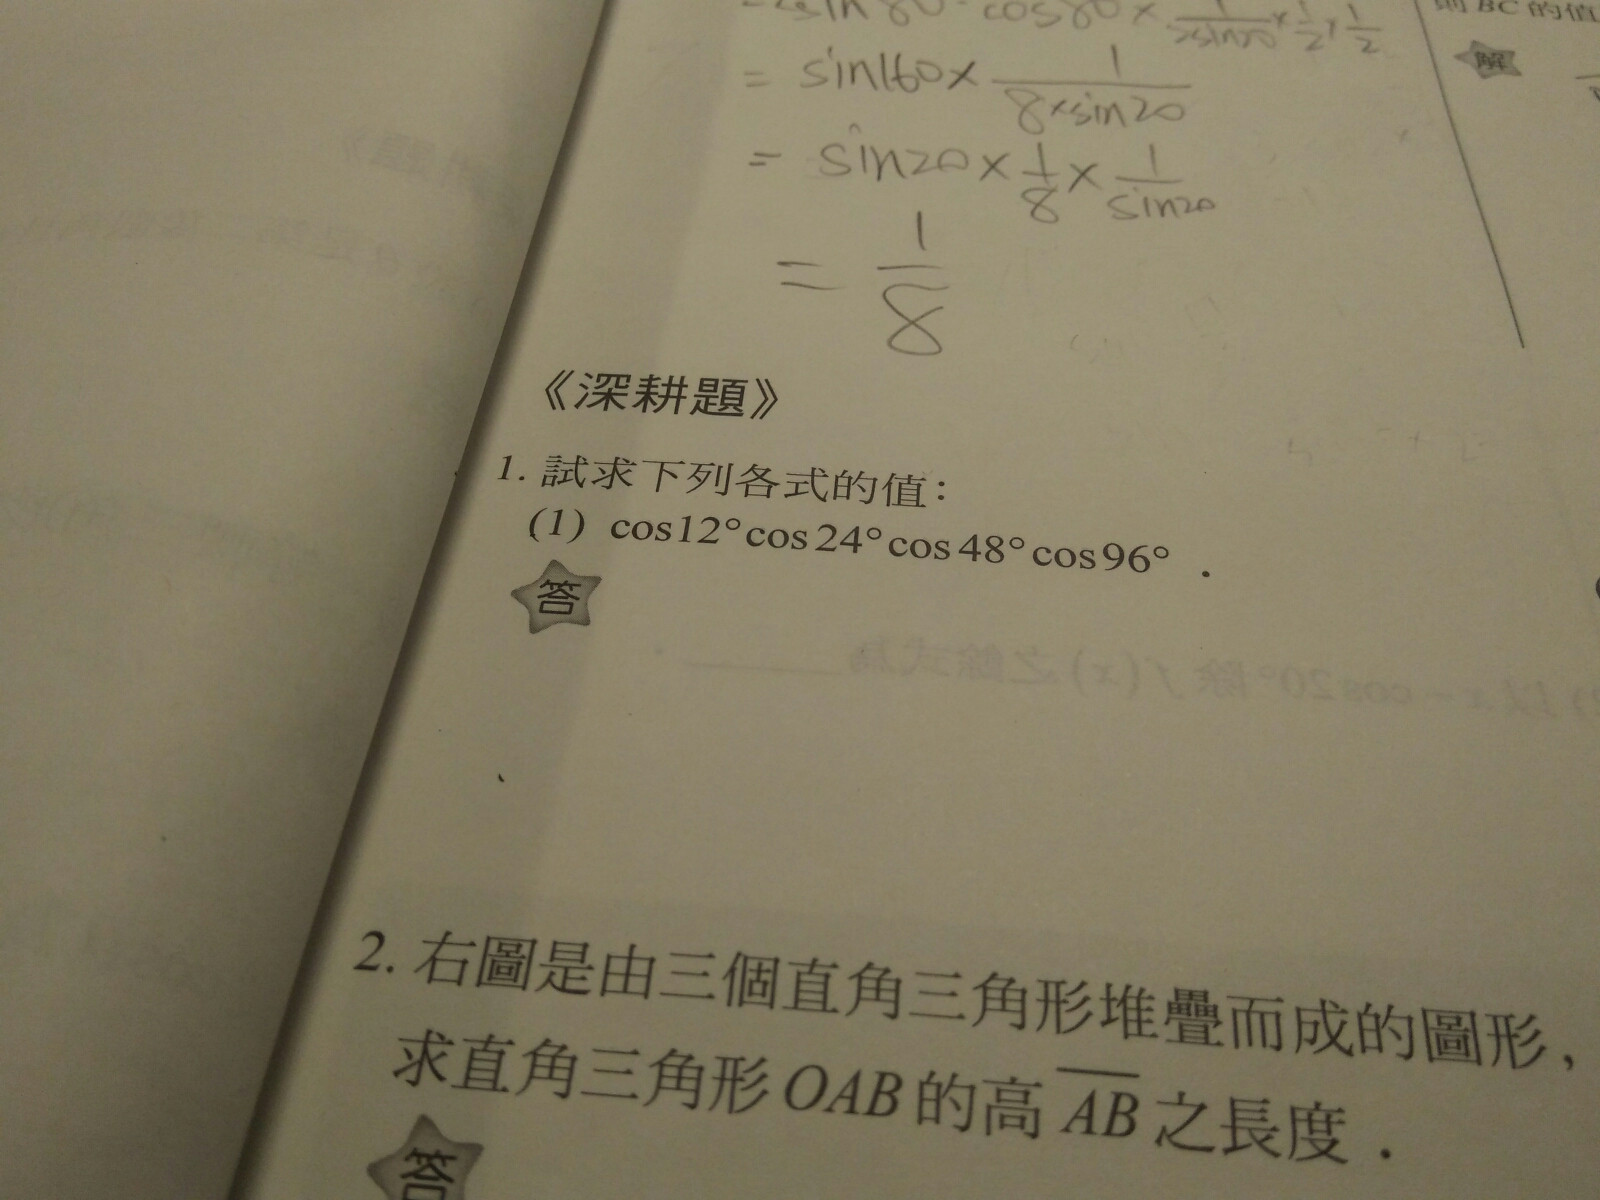 = sin160 × 1/(8×sin20)
= sin20 × 1/8 × 1/sin20
= 1/8
則 BC 的值
解
《深耕題》
1. 試求下列各式的值：
(1) cos12°cos24°cos48°cos96° .
答
2. 右圖是由三個直角三角形堆疊而成的圖形，
求直角三角形OAB的高 AB 之長度．
答